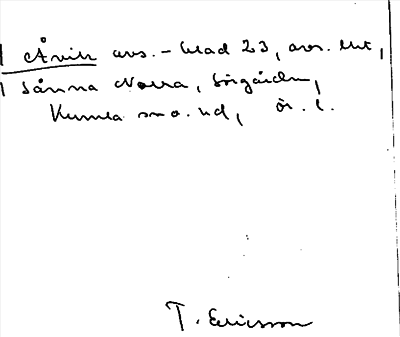 Åvik avs.-blad 23, avs. lut,
Sånna Norra, Sörgården,
Kumla sn o. hd, ör. l.
T. Ericsson